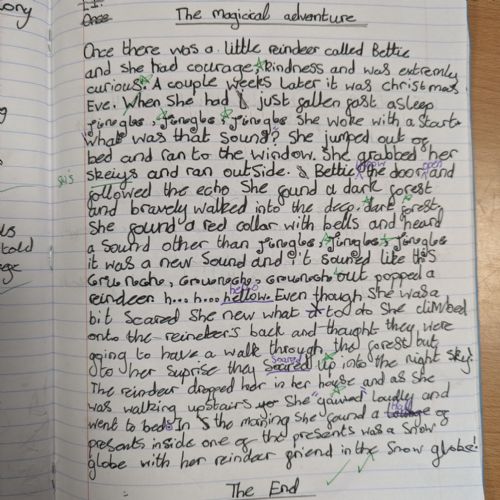 ory
told
ge
1.1
Once
The magical adventure
Once there was a little reindeer called Bettie
and she had courage, kindness and was extremly
curious. A couple weeks later it was christmas
Eve. When she had just fallen fast asleep
jingles, jingles, jingles She woke with a start.
"what was that sound"? She jumped out of
bed and ran to the window. She grabbed her
skis
skeiys and ran outside. Bettie the door and
threw open
followed the echo She found a dark forest
and bravely walked into the deep, dark forest,
She found a red collar with bells and heard
a sound other than jingles, jingles, jingles
it was a new sound and it souned like this
out popped a
reindeer h... h... hellow. Even though she was a
hello
bit scared she new what to do She climbed
onto the reindeers back and thought they were
going to have a walk through the forest but
to her suprise they up into the night sky.
soared
The reindeer dropped her in her house and as she
was walking upstairs she loudly and
went to bed. In the morning she found a of
presents inside one of the presents was a snow
globe with her reindeer friend in the snow globe!
The End